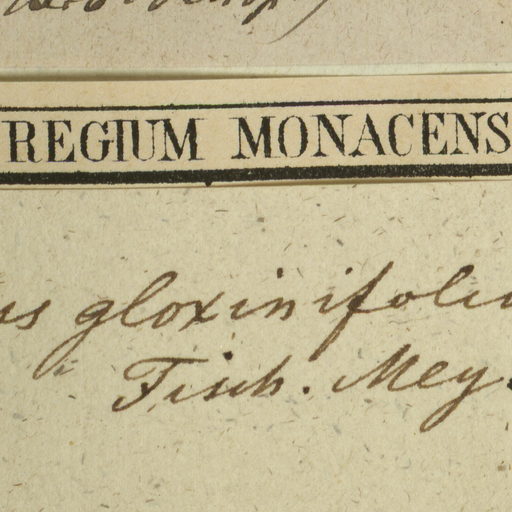 REGIUM MONACENS
ss gloxinifolia
Fisch. Mey.